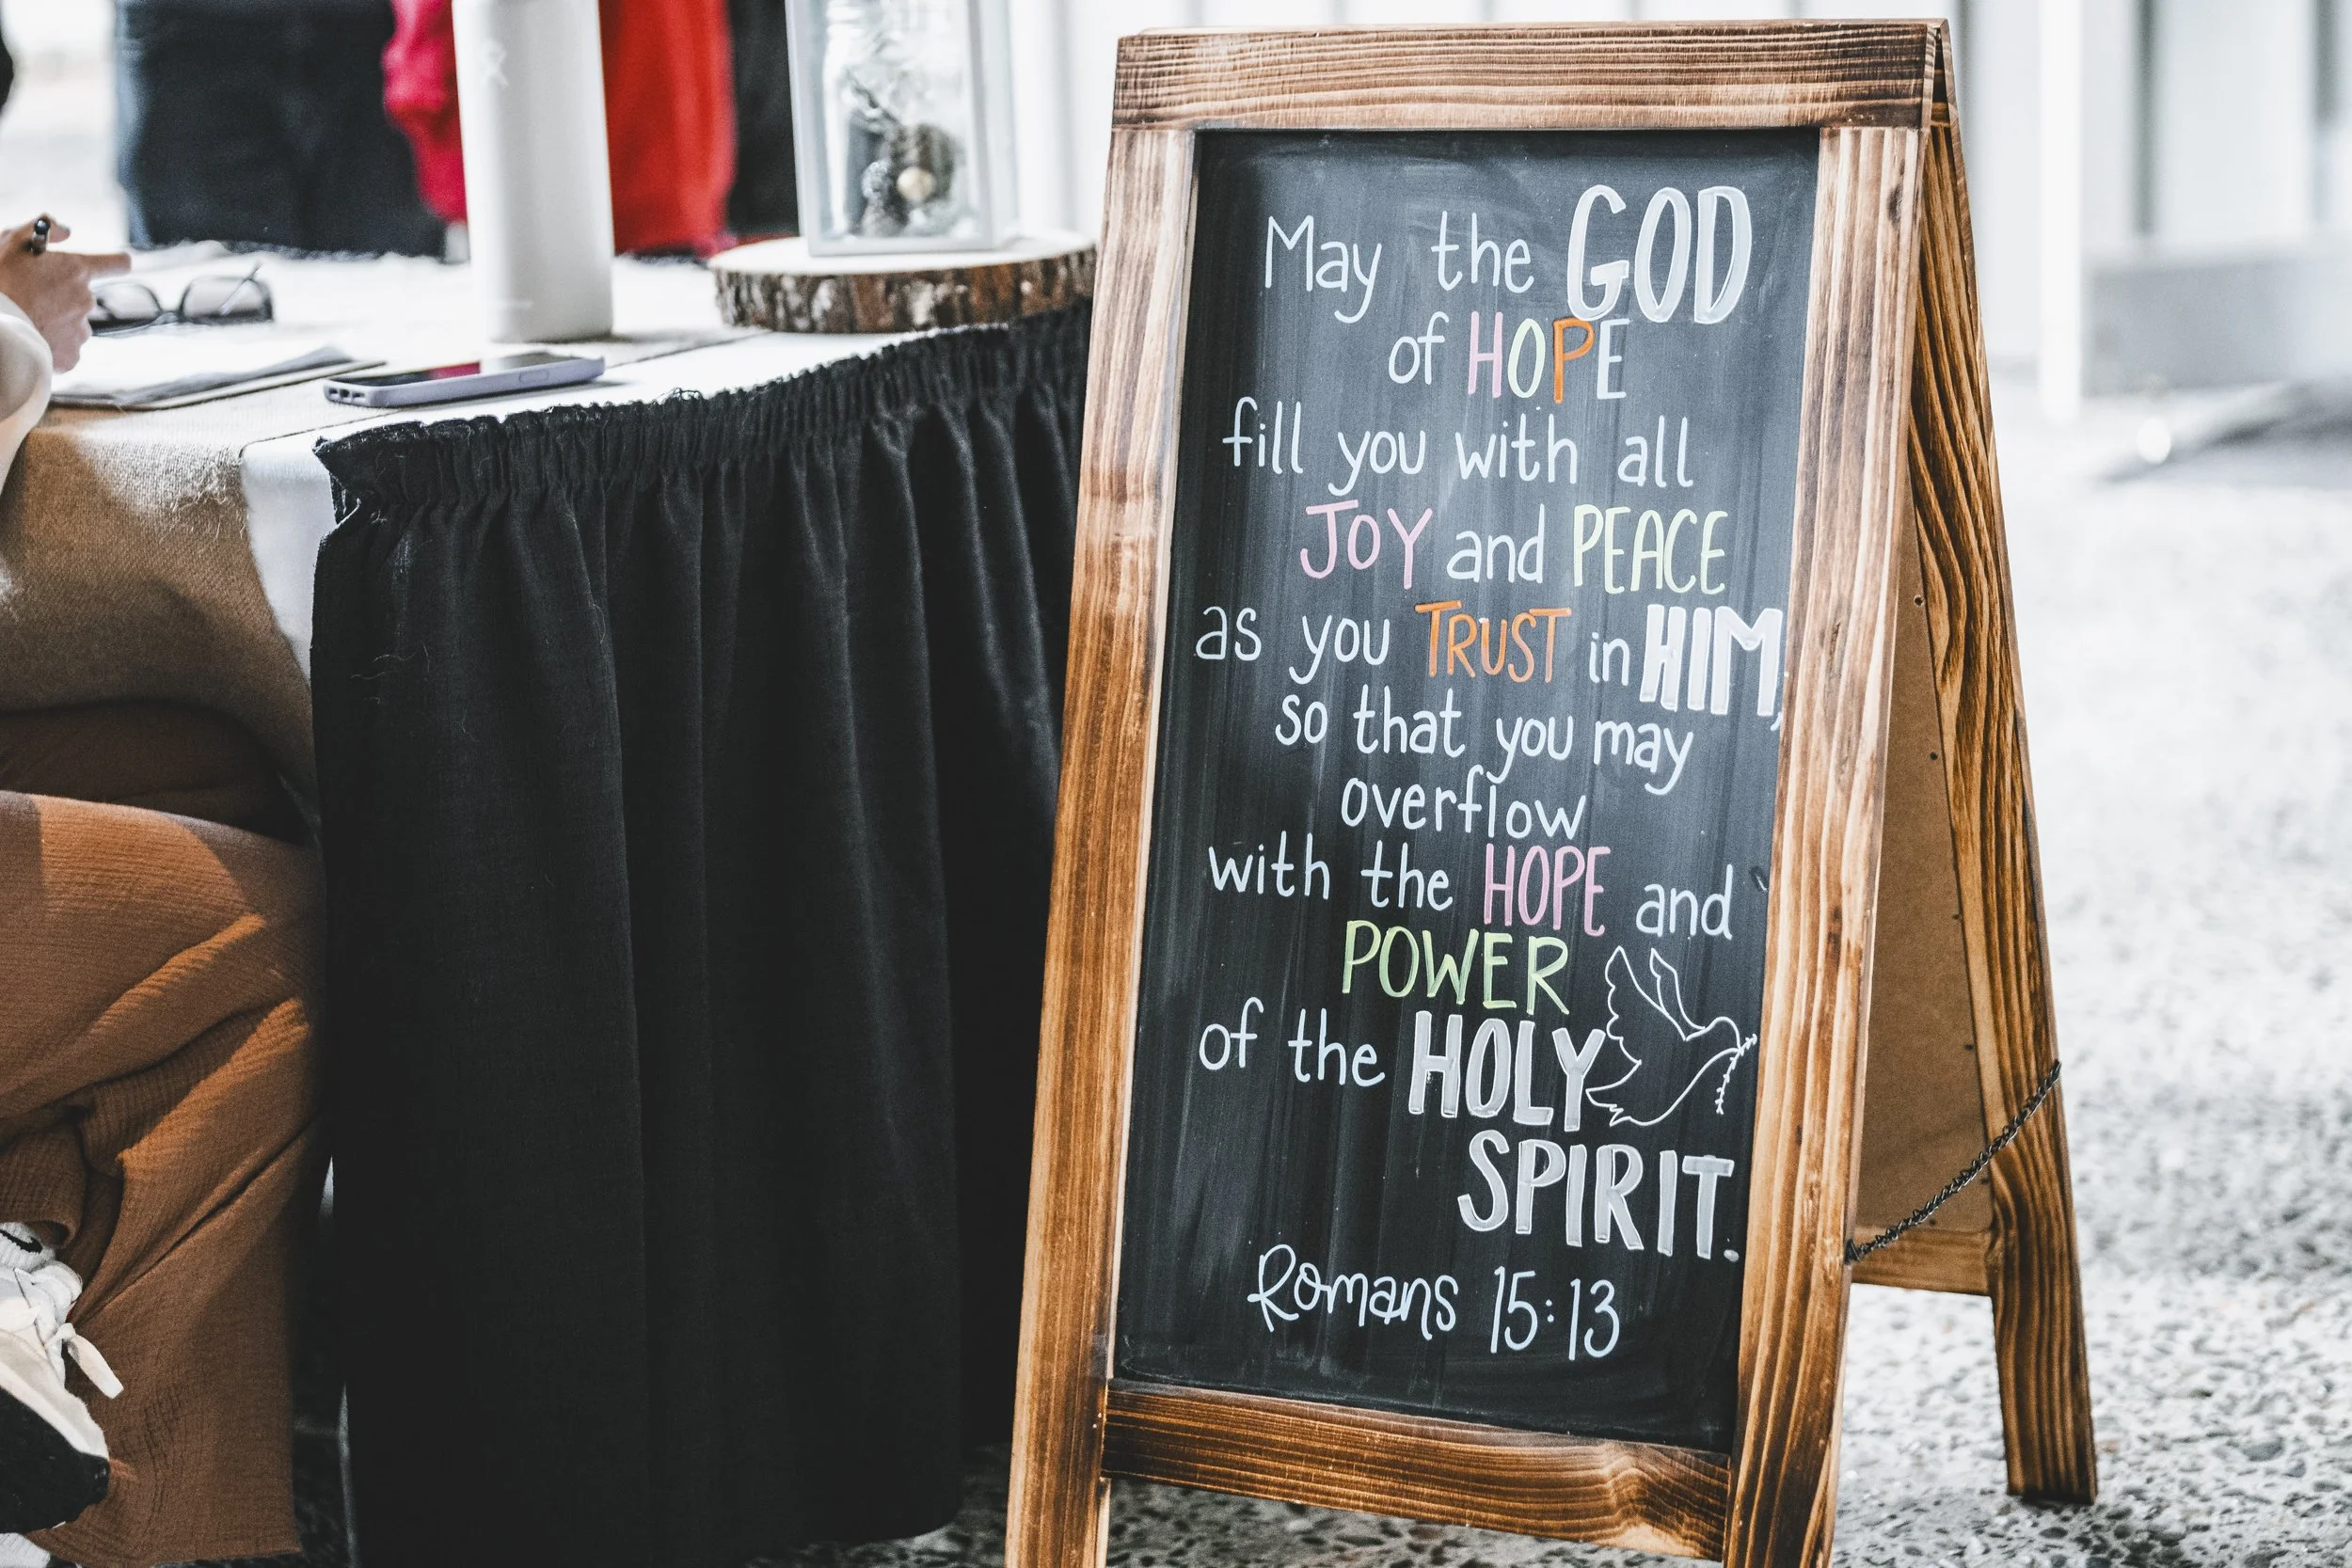 May the GOD
of HOPE
fill you with all
JOY and PEACE
as you TRUST in HIM,
so that you may
overflow
with the HOPE and
POWER
of the HOLY
SPIRIT.
Romans 15:13